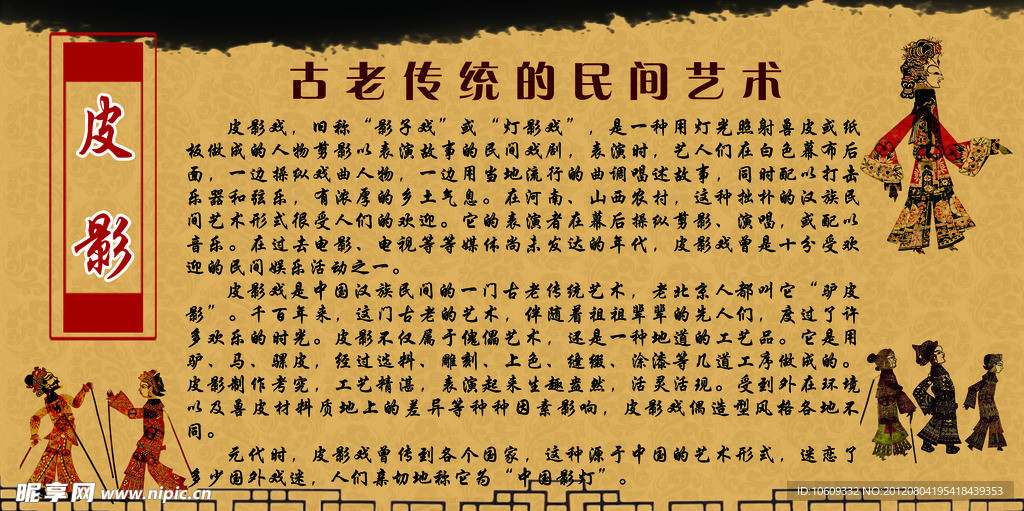 古老传统的民间艺术
皮
影
皮影戏，旧称“影子戏”或“灯影戏”，是一种用灯光照射兽皮或纸
板做成的人物剪影以表演故事的民间戏剧，表演时，艺人们在白色幕布后
面，一边操纵戏曲人物，一边用当地流行的曲调唱述故事，同时配以打击
乐器和弦乐，有浓厚的乡土气息。在河南、山西农村，这种拙朴的汉族民
间艺术形式很受人们的欢迎。它的表演者在幕后操纵剪影、演唱，或配以
音乐。在过去电影、电视等等媒体尚未发达的年代，皮影戏曾是十分受欢
迎的民间娱乐活动之一。
皮影戏是中国汉族民间的一门古老传统艺术，老北京人都叫它“驴皮
影”。千百年来，这门古老的艺术，伴随着祖祖辈辈的先人们，度过了许
多欢乐的时光。皮影不仅属于傀儡艺术，还是一种地道的工艺品。它是用
驴、马、骡皮，经过选料、雕刻、上色、缝缀、涂漆等几道工序做成的。
皮影制作考究，工艺精湛，表演起来生趣盎然，活灵活现。受到外在环境
以及兽皮材料质地上的差异等种种因素影响，皮影戏偶造型风格各地不
同。
元代时，皮影戏曾传到各个国家，这种源于中国的艺术形式，迷恋了
多少国外戏迷，人们亲切地称它为“中国影灯”。
昵享网 www.nipic.cn
ID:10609332 NO:20120804195418439353